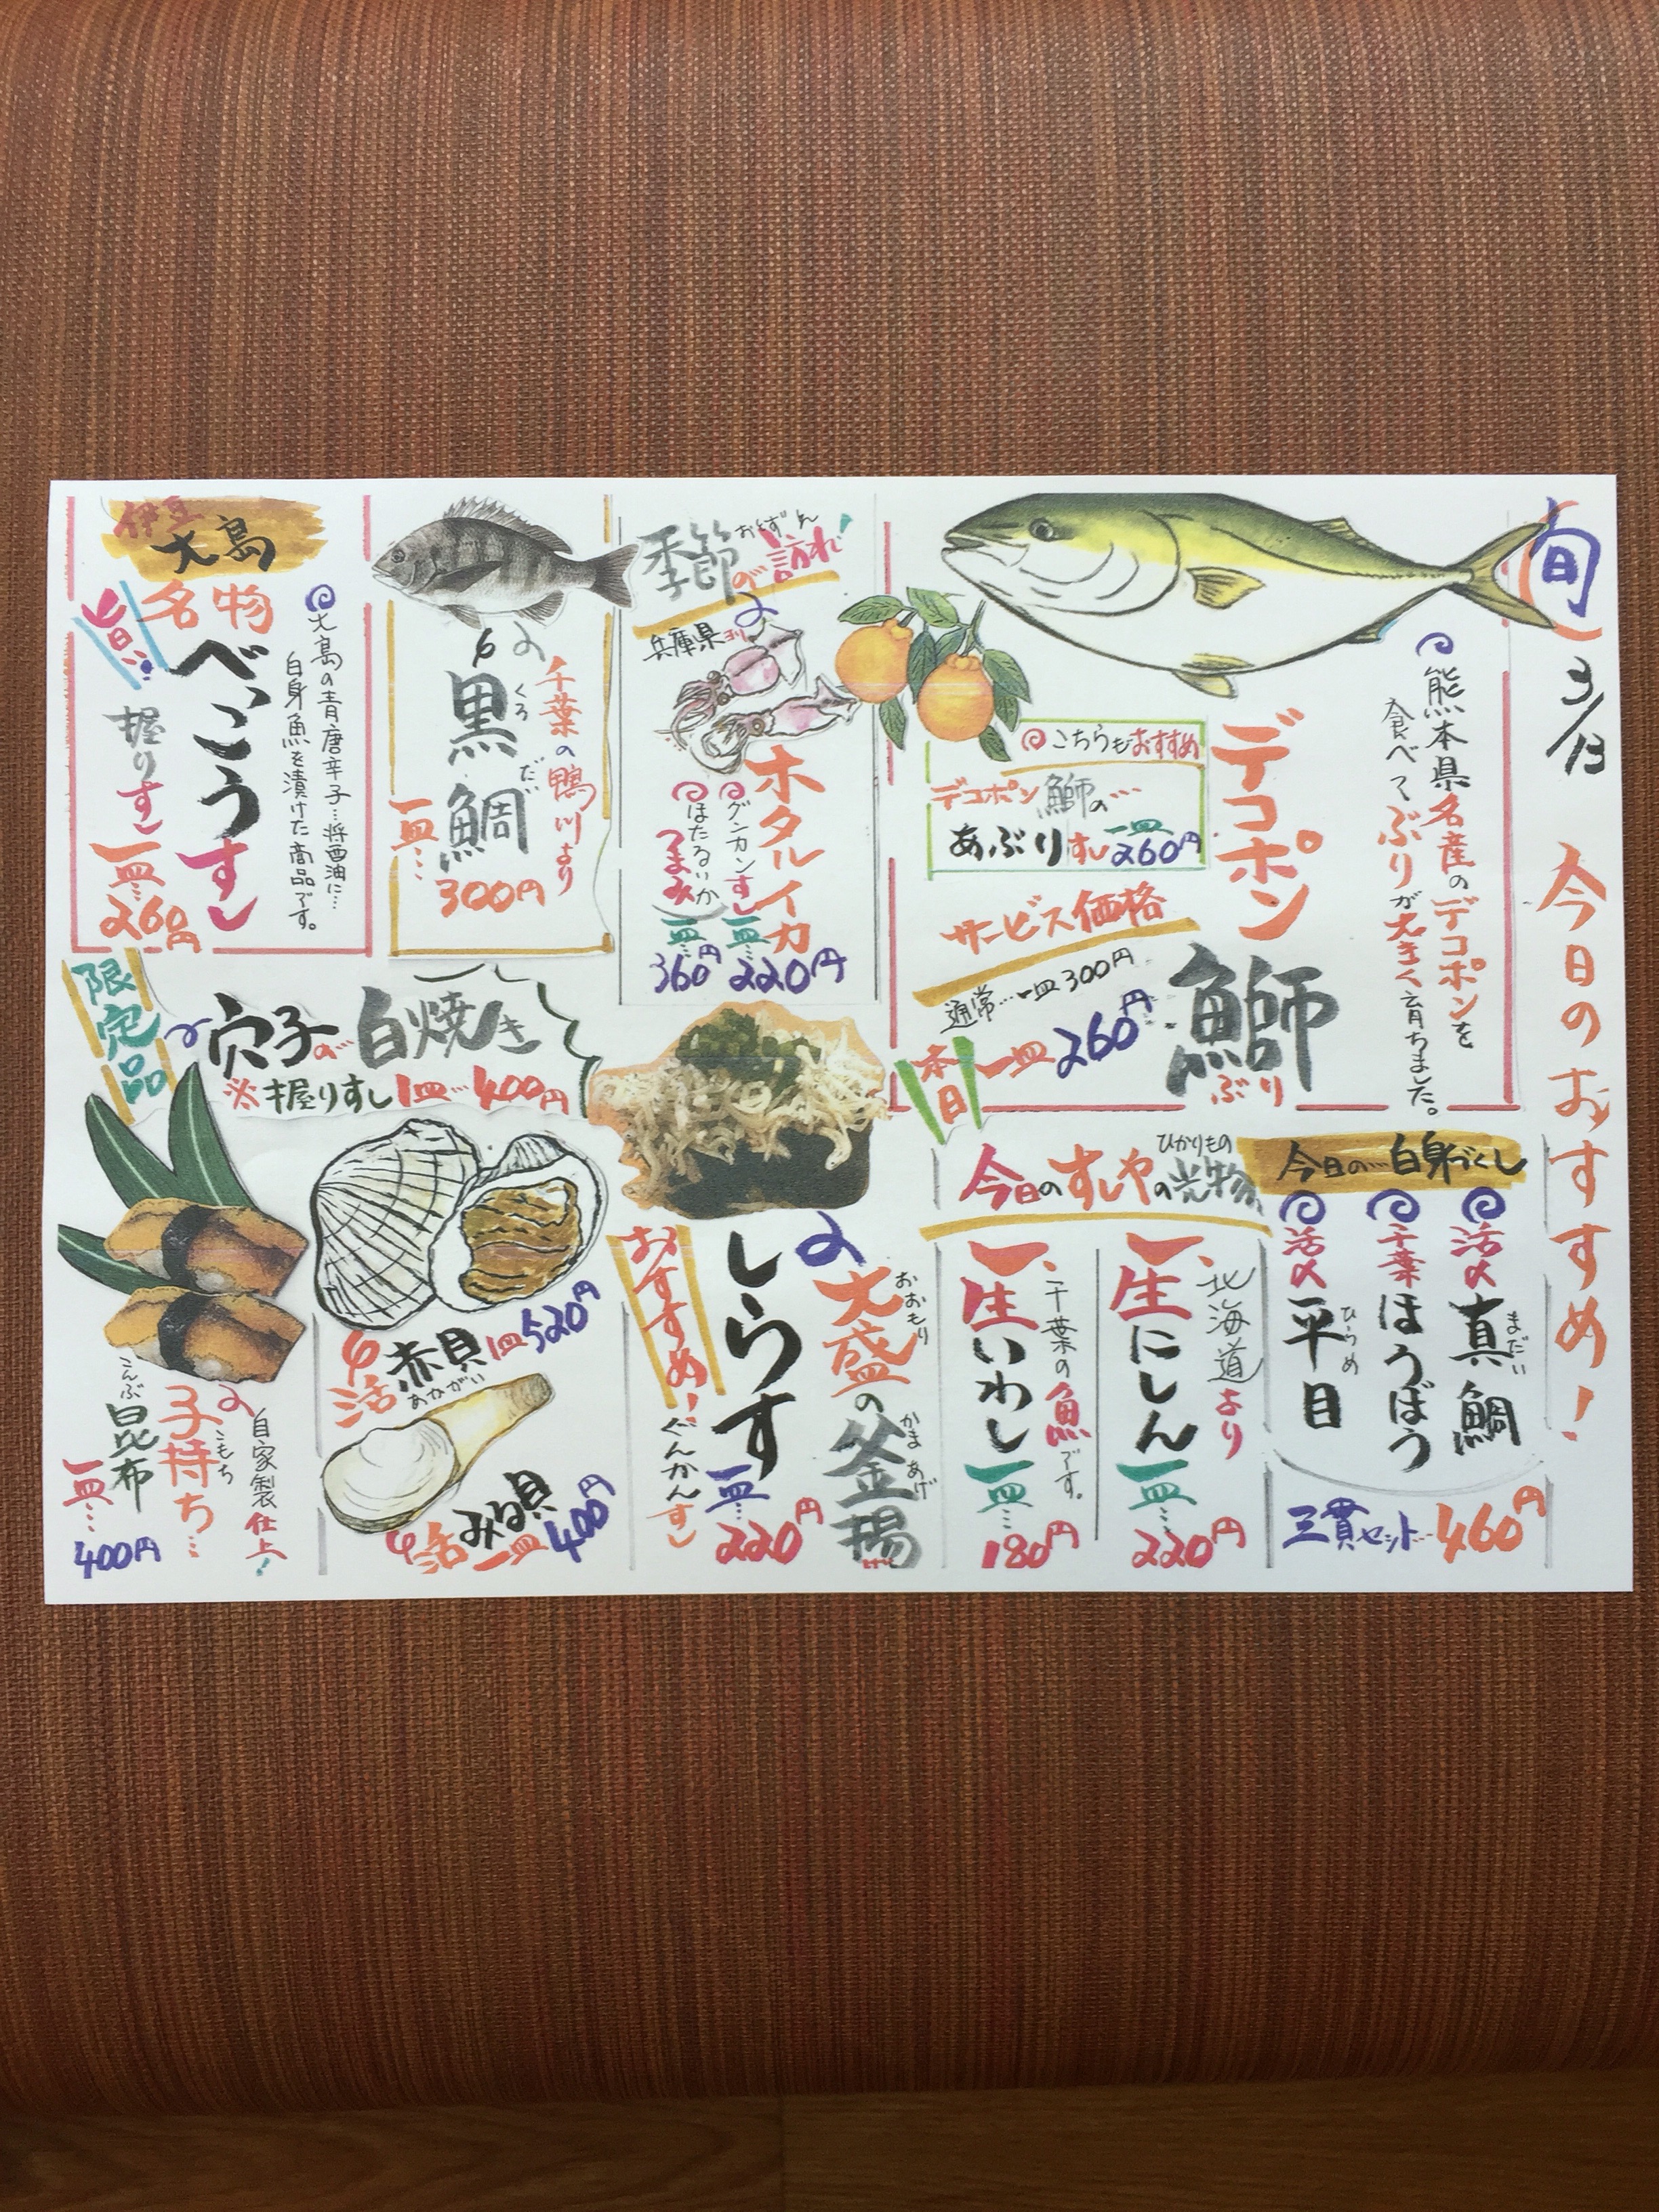 旬
3/13
今日のおすすめ!
熊本県名産のデコポンを
食べてぶりが大きく育ちました。
デコポン
鰤
ぶり
こちらもおすすめ
デコポン鰤の…
あぶりすし一皿260円
サービス価格
通常…一皿300円
本日一皿260円
季節の訪れ
おとずれ
兵庫県より
ホタルイカ
グンカンすし一皿…220円
ほたるいかつまみ一皿…360円
千葉の鴨川より
黒鯛
くろだ
一皿…
300円
伊豆
大島
名物
旨い!
べっこうすし
大島の青唐辛子…将酉油に…
白身魚を漬けた商品です。
握りすし一皿…
260円
限定品
穴子の白焼き
※握りすし1皿…400円
今日の…白身づくし
活〆真鯛
まだい
千葉ほうぼう
活〆平目
ひらめ
三貫セット…460円
今日のすしやの光物
ひかりもの
一、北海道より
生にしん
一皿…
220円
一、千葉の魚です。
生いわし
一皿…
180円
大盛の釜揚げ
おおもり
かまあげ
しらす
一皿…
220円
おすすめ!
ぐんかんすし
活赤貝1皿520円
あかがい
活みる貝
一皿400円
自家製仕上!
子持ち…
こもち
昆布
こんぶ
一皿…
400円